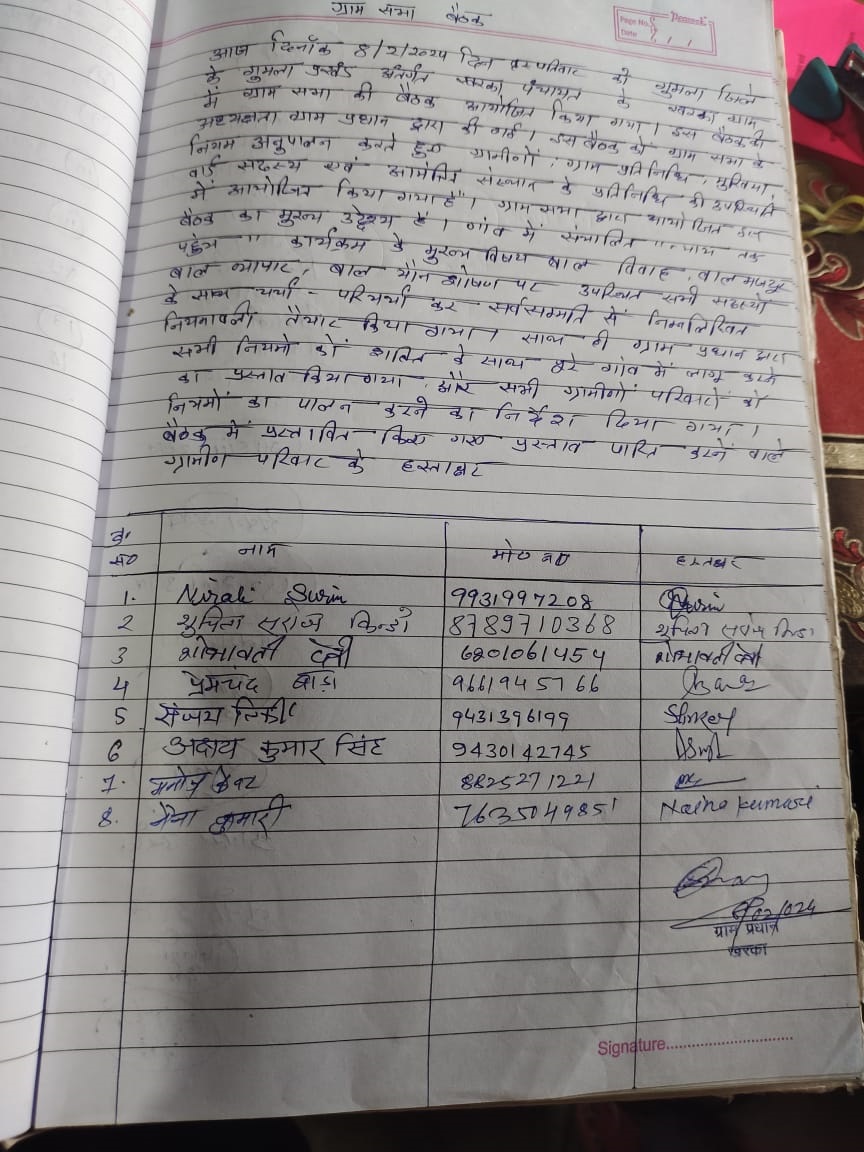 ग्राम सभा बैठक
Page No.
Date
Peacock
आज दिनाँक 8/2/2024 दिन को गुमला जिले
के गुमला प्रखंड अंतर्गत खरका पंचायत के खरका ग्राम
में ग्राम सभा की बैठक आयोजित किया गया। इस बैठक की
अध्यक्षता ग्राम प्रधान द्वारा की गई। इस बैठक को ग्राम सभा के
नियम अनुपालन करते हुए ग्रामीणों, ग्राम प्रतिनिधि, मुखिया,
वार्ड सदस्य एवं आमंत्रित संस्थान के प्रतिनिधि की उपस्थिति
में आयोजित किया गया है। ग्राम सभा द्वारा आयोजित इस
बैठक का मुख्य उद्देश्य है। गांव में संचालित "न्याय तक
पहुंच" कार्यक्रम के मुख्य विषय बाल विवाह, बाल मजदूर
बाल व्यापार, बाल यौन शोषण पर उपस्थित सभी सदस्यों
के साथ चर्चा - परिचर्चा कर सर्वसम्मति से निम्नलिखित
नियमावली तैयार किया गया। साथ ही ग्राम प्रधान द्वारा
सभी नियमो को के साथ पूरे गांव में लागू करने
का प्रस्ताव किया गया और सभी ग्रामीणों परिवारों को
नियमों का पालन करने का निर्देश दिया गया।
बैठक में प्रस्तावित किए गए प्रस्ताव पारित करने वाले
ग्रामीण परिवार के हस्ताक्षर
क्र० सं० नाम मो० न० हस्ताक्षर
1. Nirali Surin 9931997208 Surin
2 शुचिता सरोज किन्डो 8789710368 शुचिता सरोज किन्डो
3 शोभावती देवी 6201061454 शोभावती देवी
4 प्रेमचंद बाड़ा 9661945766
5 संजय तिर्की 9431396199
6 अक्षय कुमार सिंह 9430142745
7. मनोज केवट 8825271221
8. नैना कुमारी 7635049851 Naina kumari
8/02/024
ग्राम प्रधान
खरका
Signature